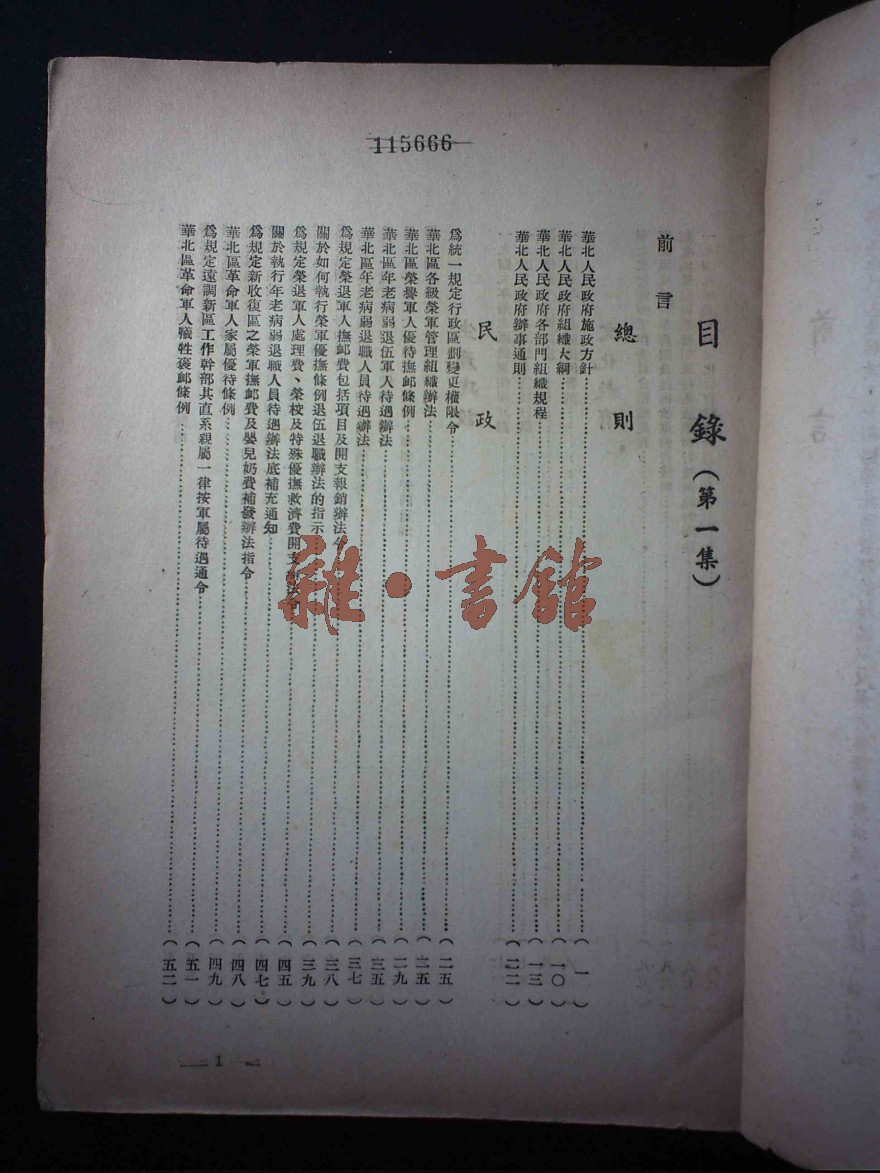 115666
目錄（第一集）
前言
總則
華北人民政府施政方針（一）
華北人民政府組織大綱（一〇）
華北人民政府各部門組織規程（一三）
華北人民政府辦事通則（二二）
民政
爲統一規定行政區劃變更權限令（二五）
華北區各級榮軍管理組織辦法（二五）
華北區榮譽軍人優待撫卹條例（二九）
華北區年老病弱退伍軍人待遇辦法（三五）
華北區年老病弱退職人員待遇辦法（三七）
爲規定榮退軍人撫卹費包括項目及開支報銷辦法令（三八）
關於如何執行榮軍優撫條例退伍退職辦法的指示（三九）
爲規定榮退軍人處理費、榮校及特殊優撫救濟費開支辦法令（四五）
關於執行年老病弱退職人員待遇辦法底補充通知（四七）
爲規定新收復區之榮軍撫卹費及嬰兒奶費補發辦法指令（四八）
華北區革命軍人家屬優待條例（四九）
爲規定遠調新區工作幹部其直系親屬一律按軍屬待遇通令（五一）
華北區革命軍人犧牲褒卹條例（五二）
1
雜·書館